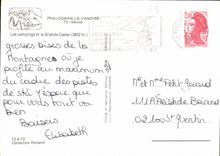 PRALOGNAN-LA-VANOISE
73 - Savoie
Les campings et la Grande Casse (3852 m.)
grosses bises de la
montagne où je
profite au maximum
du cadre des pistes
de ski. J'espère que
pour vous tout va
bien.
Baisers
Elisabeth
73 A 73
Collection Rolland
2,20
Mr et Mme Petit Gérard
02100 St Quentin